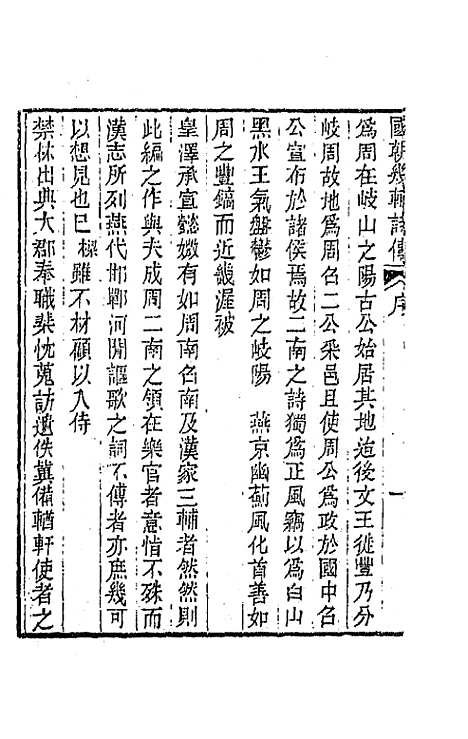 國朝畿輔詩傳 序 一
爲周在岐山之陽古公始居其地迨後文王徙豐乃分
岐周故地爲周名二公采邑且使周公爲政於國中名
公宣布於諸侯焉故二南之詩獨爲正風竊以爲白山
黑水王氣盤鬱如周之岐陽 燕京幽薊風化首善如
周之豐鎬而近畿渥被
皇澤承宣懿媺有如周南名南及漢家三輔者然然則
此編之作與夫成周二南之領在樂官者意惜不殊而
漢志所列燕代邯鄲河閒謳歌之詞不傳者亦庶幾可
以想見也已樑雖不材顧以入侍
禁林出典大郡奉職棐忱蒐訪遺佚冀備輶軒使者之